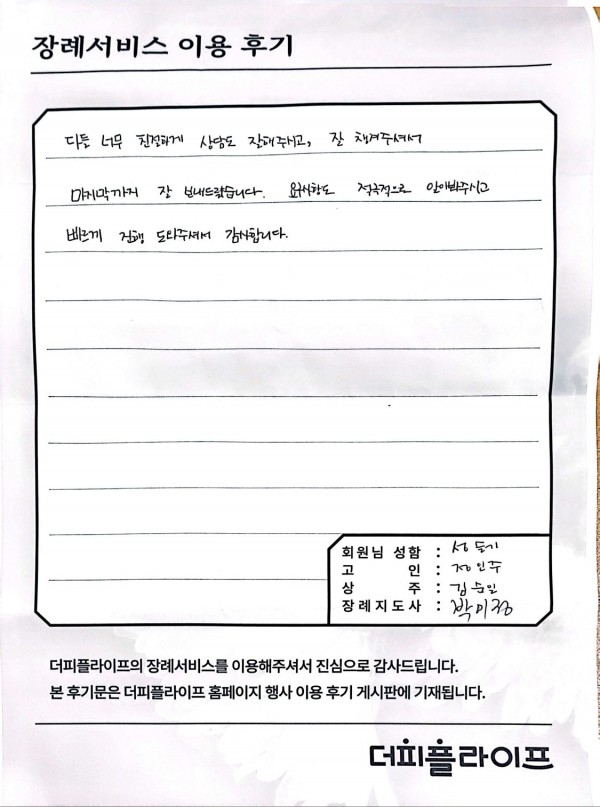 장례서비스 이용 후기
다들 너무 친절하게 상담도 잘해주시고, 잘 챙겨주셔서
마지막까지 잘 보내드렸습니다. 요구사항도 적극적으로 알아봐주시고
빠르게 진행 도와주셔서 감사합니다.
회원님 성함 :
고 인 : 정인주
상 주 : 김순인
장례지도사 : 박미정
더피플라이프의 장례서비스를 이용해주셔서 진심으로 감사드립니다.
본 후기문은 더피플라이프 홈페이지 행사 이용 후기 게시판에 기재됩니다.
더피플라이프